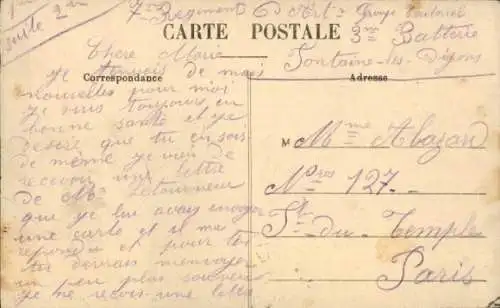 suite 2
7me Regiment d'Art Groupe Territorial
3me Batterie
Fontaine-les-Dijons
CARTE POSTALE
Correspondance
Adresse
Chere Marie
je de mais
nouvelles pour moi
je suis toujours en
bonne santé et je
desire que tu en sois
de même je viens de
recevoir une lettre
de Mr Letourneur
que je lui avais envoyer
une carte et il m'as
repondre et pour toi
tu devrais m'envoyer
un peu plus souvent
je ne recois une lettre
M Mme
Nros 127
Rt-du-Temple
Paris